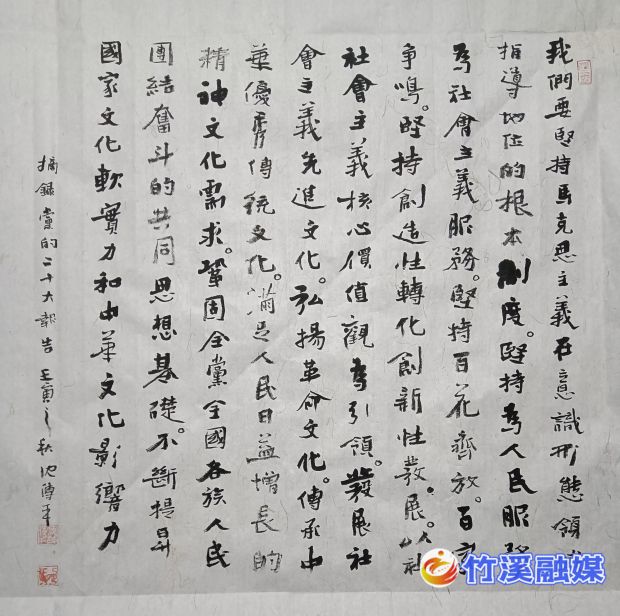 我們要堅持馬克思主義在意識形態領域
指導地位的根本制度。堅持為人民服務
為社會主義服務。堅持百花齊放。百家
爭鳴。堅持創造性轉化創新性發展。以社
社會主義核心價值觀為引領。發展社
會主義先進文化。弘揚革命文化。傳承中
華優秀傳統文化。滿足人民日益增長的
精神文化需求。鞏固全黨全國各族人民
團結奮斗的共同思想基礎。不斷提昇
國家文化軟實力和中華文化影響力
摘錄黨的二十大報告 壬寅之秋沈傳平
竹溪融媒